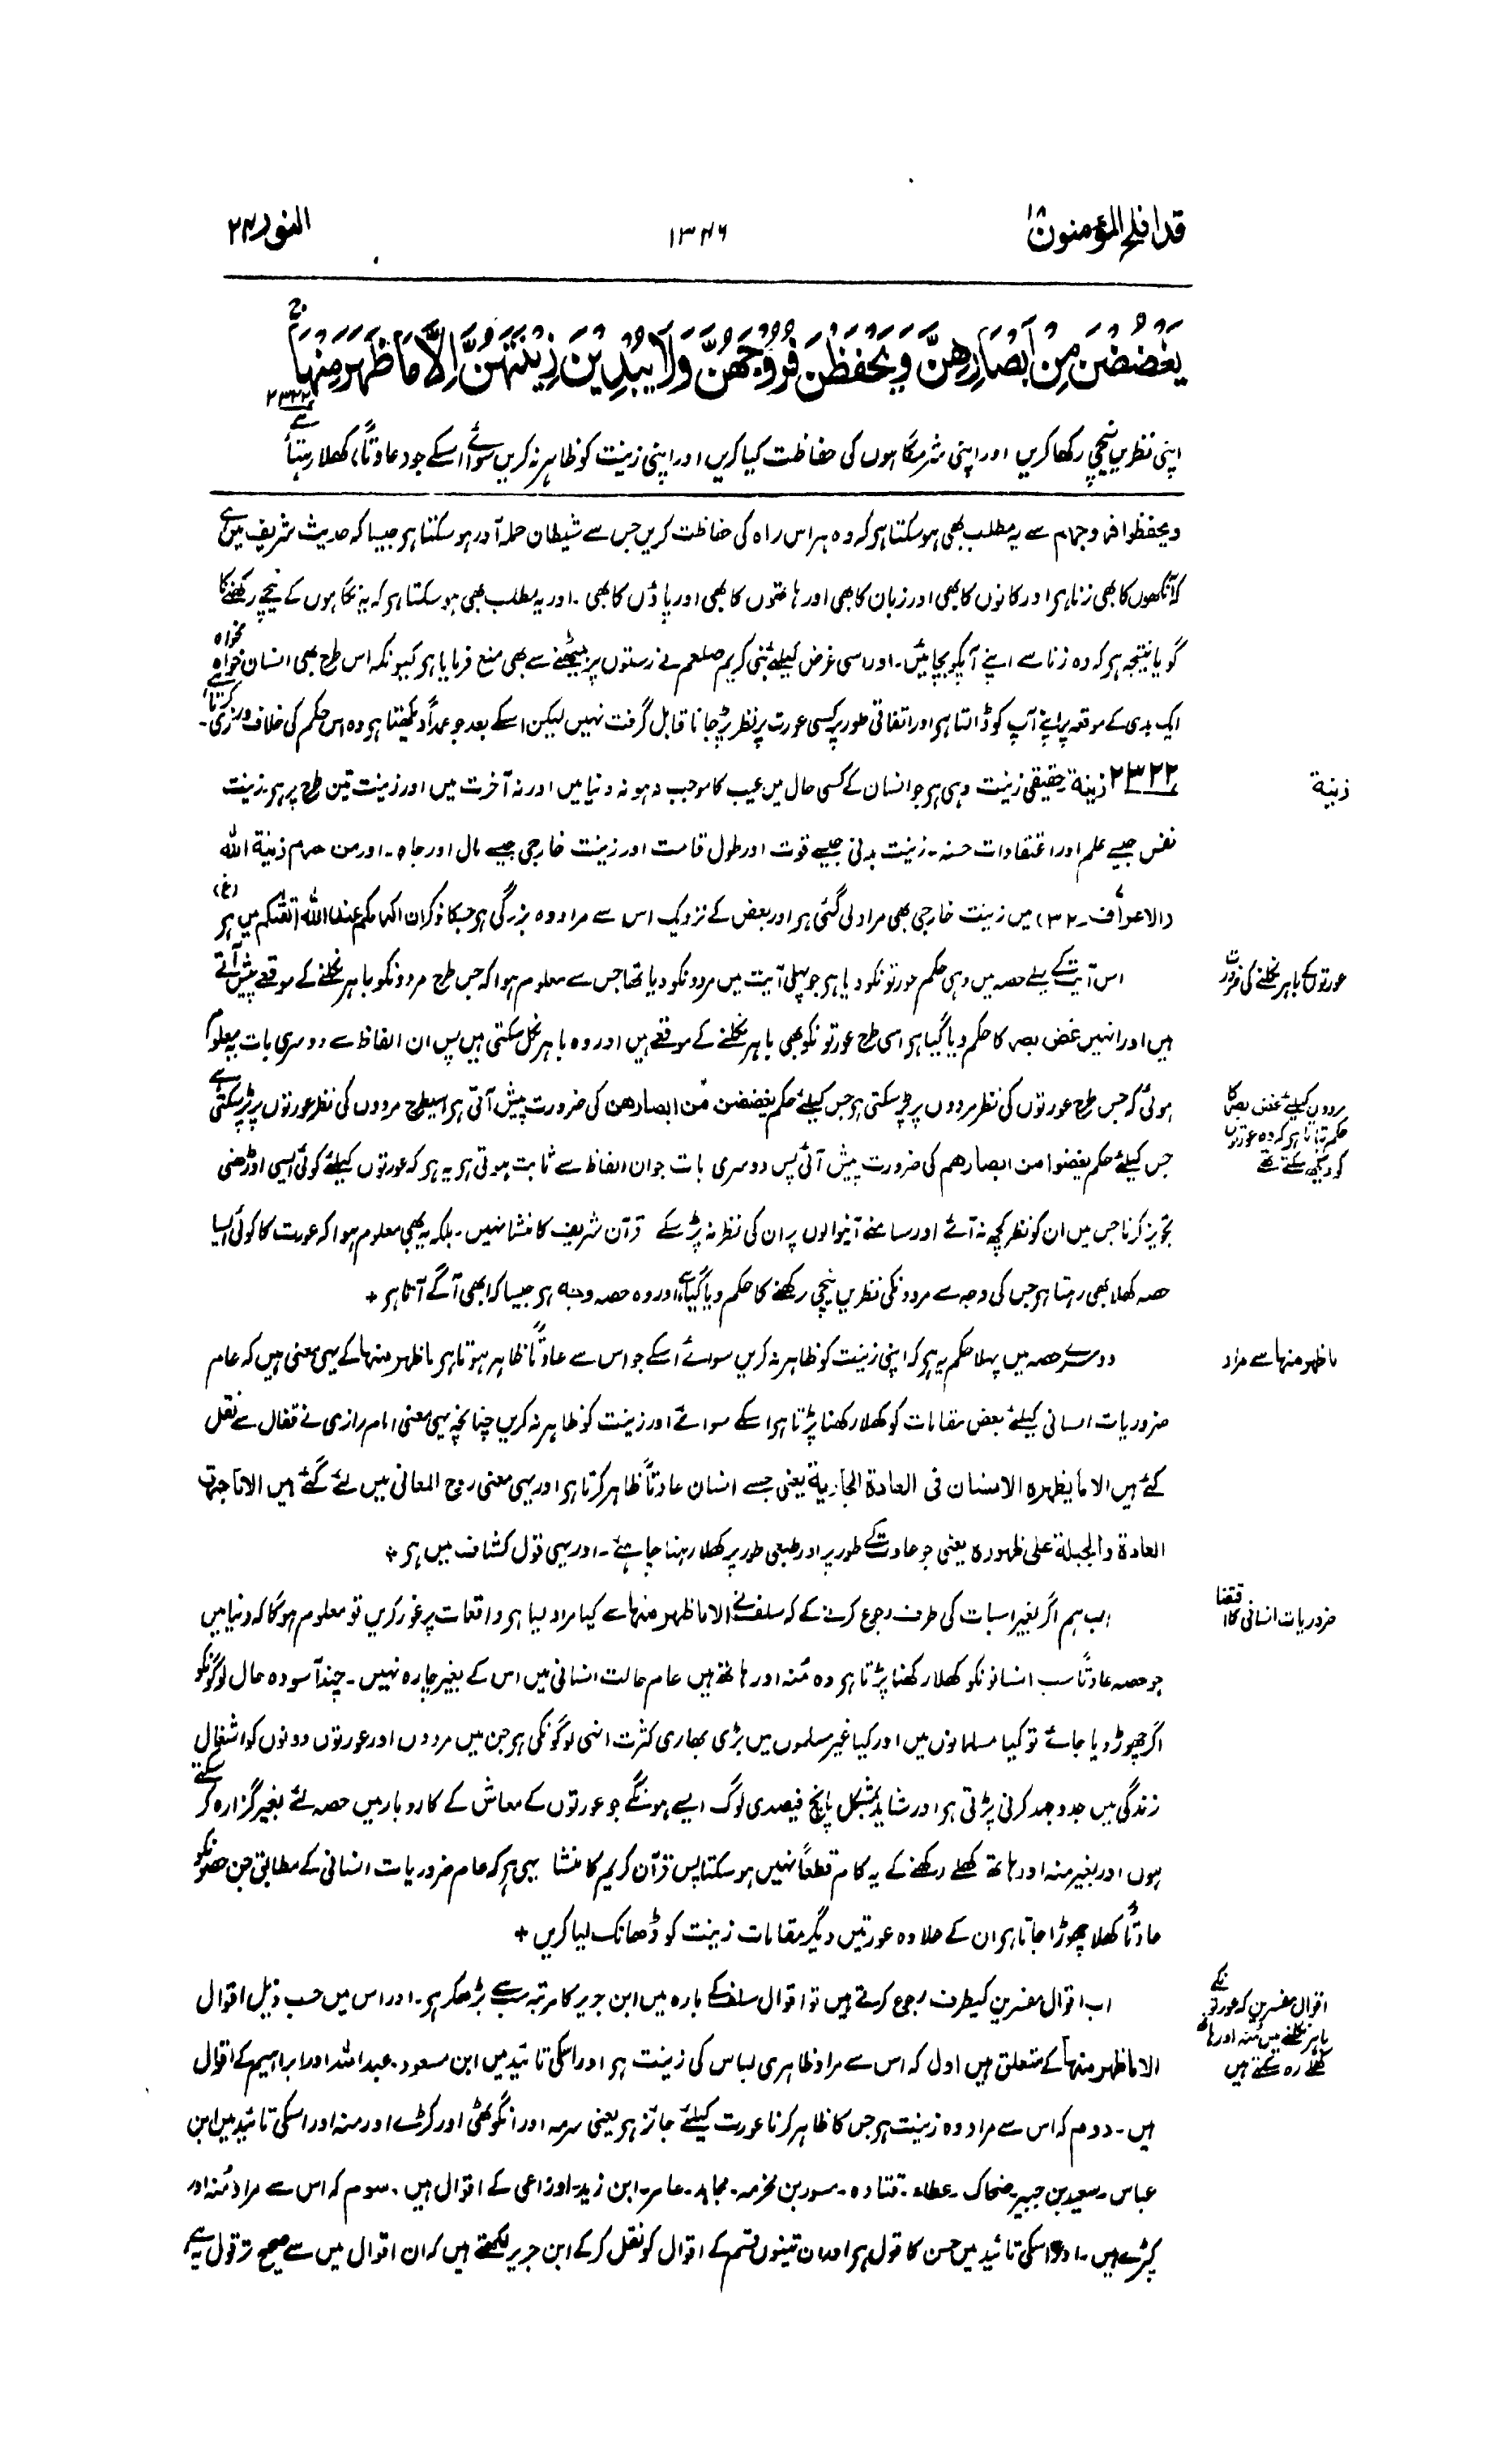 قد افلح المؤمنون ۱۸
۱۳۴۶
النور ۲۴
يَغْضُضْنَ مِنْ اَبْصَارِهِنَّ وَيَحْفَظْنَ فُرُوْجَهُنَّ وَلَا يُبْدِيْنَ زِيْنَتَهُنَّ اِلَّا مَا ظَهَرَ مِنْهَا
۲۳۲۲
اپنی نظریں نیچی رکھا کریں اور اپنی شرمگاہوں کی حفاظت کیا کریں اور اپنی زینت کو ظاہر نہ کریں سوائے اسکے جو (عادتاً) کھلا رہتا ہے
ویحفظوا فروجہم سے یہ مطلب بھی ہو سکتا ہر کہ وہ ہر اس راہ کی حفاظت کریں جس سے شیطان حملہ آور ہو سکتا ہر جیسا کہ حدیث شریف میں ہے
کہ آنکھوں کا بھی زنا ہر اور کانوں کا بھی اور زبان کا بھی اور ہاتھوں کا بھی اور پاؤں کا بھی ۔ اور یہ مطلب بھی ہو سکتا ہر کہ یہ نگاہوں کے نیچے رکھنے کا
گویا نتیجہ ہر کہ وہ زنا سے اپنے آپکو بچائیں ۔ اور اسی غرض کیلئے نبی کریم صلعم نے رستوں پر بیٹھنے سے بھی منع فرمایا ہر کیونکہ اس طرح بھی انسان خواہ نخواہ
ایک بدی کے موقعہ پر اپنے آپ کو ڈالتا ہر اور اتفاقی طور پر کسی عورت پر نظر پڑ جانا قابل گرفت نہیں لیکن اسکے بعد جو عمداً دیکھتا ہر وہ اس حکم کی خلاف ورزی کرتا ہے ۔
زینة
۲۳۲۲ زینة حقیقی زینت وہی ہر جو انسان کے کسی حال میں عیب کا موجب نہ ہو نہ دنیا میں اور نہ آخرت میں اور زینت تین طرح پر ہر زینت
نفس جیسے علم اور اعتقادات حسنہ ۔ زینت بدنی جیسے قوت اور طول قامت اور زینت خارجی جیسے مال اور جاہ ۔ اور من حرم زینة اللہ
(الاعراف ۔ ۳۲) میں زینت خارجی بھی مراد لی گئی ہر اور بعض کے نزدیک اس سے مراد وہ بزرگی ہر جسکا ذکر ان اکرمکم عند اللہ اتقٰکم میں ہر (غ)
عورتوں کے باہر نکلنے کی ضرورت
اس آیت کے پہلے حصہ میں وہی حکم عورتونکو دیا ہر جو پہلی آیت میں مردونکو دیا تھا جس سے معلوم ہوا کہ جس طرح مردونکو باہر نکلنے کے موقعے پیش آتے
ہیں اور انہیں غض بصر کا حکم دیا گیا ہر اسی طرح عورتونکو بھی باہر نکلنے کے موقعے ہیں اور وہ باہر نکل سکتی ہیں پس ان الفاظ سے دوسری بات یہ معلوم
مردوں کیلئے غض بصر کا
حکم بتاتا ہر کہ وہ عورتوں
کو دیکھ سکتے تھے
ہوئی کہ جس طرح عورتوں کی نظر مردوں پر پڑ سکتی ہر جس کیلئے حکم یغضضن من ابصارھن کی ضرورت پیش آتی ہر اسیطرح مردوں کی نظر عورتوں پر پڑ سکتی ہے
جس کیلئے حکم یغضوا من ابصارھم کی ضرورت پیش آئی پس دوسری بات جو ان الفاظ سے ثابت ہوتی ہر یہ ہر کہ عورتوں کیلئے کوئی ایسی اوڑھنی
تجویز کرنا جس میں ان کو نظر کچھ نہ آئے اور سامنے آنیوالوں پر ان کی نظر نہ پڑ سکے قرآن شریف کا منشا نہیں ۔ بلکہ یہ بھی معلوم ہوا کہ عورت کا کوئی ایسا
حصہ کھلا بھی رہتا ہر جس کی وجہ سے مردونکی نظریں نیچی رکھنے کا حکم دیا گیا ہے اور وہ حصہ وجہ ہر جیسا کہ ابھی آگے آتا ہر +
ما ظہر منہا سے مراد
دوسرے حصہ میں پہلا حکم یہ ہر کہ اپنی زینت کو ظاہر نہ کریں سوائے اسکے جو اس سے عادتاً ظاہر ہوتا ہر ما ظہر منہا کے یہی معنی ہیں کہ عام
ضروریات انسانی کیلئے بعض مقامات کو کھلا رکھنا پڑتا ہر اسکے سوائے اور زینت کو ظاہر نہ کریں چنانچہ یہی معنی امام رازی نے قفال سے نقل
کئے ہیں الا ما یظہرہ الانسان فی العادة الجاریة یعنی جسے انسان عادتاً ظاہر کرتا ہر اور یہی معنی روح المعانی میں لئے گئے ہیں الا ما جرت
العادة والجبلة علی ظہورہ یعنی جو عادت کے طور پر اور طبعی طور پر کھلا رہنا چاہئے ۔ اور یہی قول کشاف میں ہر +
ضروریات انسانی کا اقتضا
اب ہم اگر بغیر اسبات کی طرف رجوع کرنے کے کہ سلف نے الا ما ظہر منہا سے کیا مراد لیا ہر واقعات پر غور کریں تو معلوم ہوگا کہ دنیا میں
جو حصہ عادتاً سب انسانونکو کھلا رکھنا پڑتا ہر وہ مُنہ اور ہاتھ ہیں عام حالت انسانی میں اس کے بغیر چارہ نہیں ۔ چند آسودہ حال لوگونکو
اگر چھوڑ دیا جائے تو کیا مسلمانوں میں اور کیا غیر مسلموں میں بڑی بھاری کثرت انہی لوگونکی ہر جن میں مردوں اور عورتوں دونوں کو اشغال
زندگی میں جدوجہد کرنی پڑتی ہر اور شاید بمشکل پانچ فیصدی لوگ ایسے ہونگے جو عورتوں کے معاش کے کاروبار میں حصہ لئے بغیر گزارہ کر سکتے
ہوں اور بغیر منہ اور ہاتھ کھلے رکھنے کے یہ کام قطعاً نہیں ہو سکتا پس قرآن کریم کا منشا یہی ہر کہ عام ضروریات انسانی کے مطابق جن حصونکو
عادتاً کھلا چھوڑا جاتا ہر ان کے علاوہ عورتیں دیگر مقامات زینت کو ڈھانک لیا کریں +
اقوال مفسرین کہ عورتونکے
باہر نکلنے میں مُنہ اور ہاتھ
کھلے رہ سکتے ہیں
اب اقوال مفسرین کیطرف رجوع کرتے ہیں تو اقوال سلف کے بارہ میں ابن جریر کا مرتبہ سب سے بڑھکر ہر ۔ اور اس میں حسب ذیل اقوال
الا ما ظہر منہا کے متعلق ہیں اول کہ اس سے مراد ظاہری لباس کی زینت ہر اور اسکی تائید میں ابن مسعود ۔ عبد اللہ اور ابراہیم کے اقوال
ہیں ۔ دوم کہ اس سے مراد وہ زینت ہر جس کا ظاہر کرنا عورت کیلئے جائز ہر یعنی سرمہ اور انگوٹھی اور کڑے اور منہ اور اسکی تائید میں ابن
عباس ۔ سعید بن جبیر ۔ ضحاک ۔ عطاء ۔ قتادہ ۔ مسور بن مخرمہ ۔ مجاہد ۔ عامر ۔ ابن زید ۔ اوزاعی کے اقوال ہیں ۔ سوم کہ اس سے مراد مُنہ اور
کپڑے ہیں ۔ اور اسکی تائید میں حسن کا قول ہر اور ان تینوں قسم کے اقوال کو نقل کرکے ابن جریر لکھتے ہیں کہ ان اقوال میں سے صحیح تر قول یہ ہے